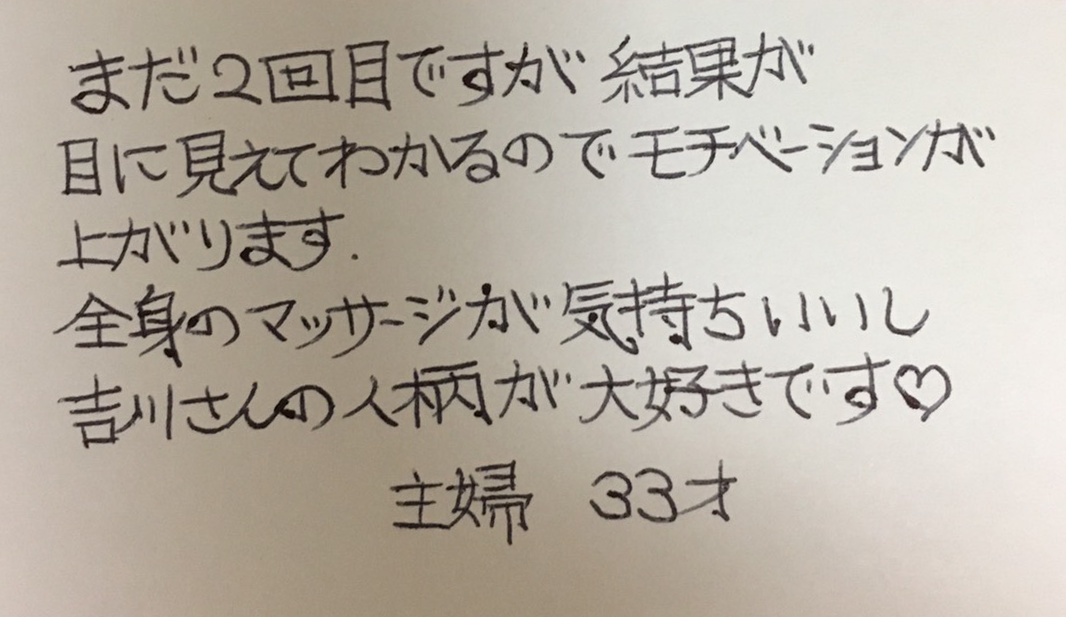 まだ2回目ですが結果が
目に見えてわかるのでモチベーションが
上がります.
全身のマッサージが気持ちいいし
吉川さんの人柄が大好きです♡
主婦 33才